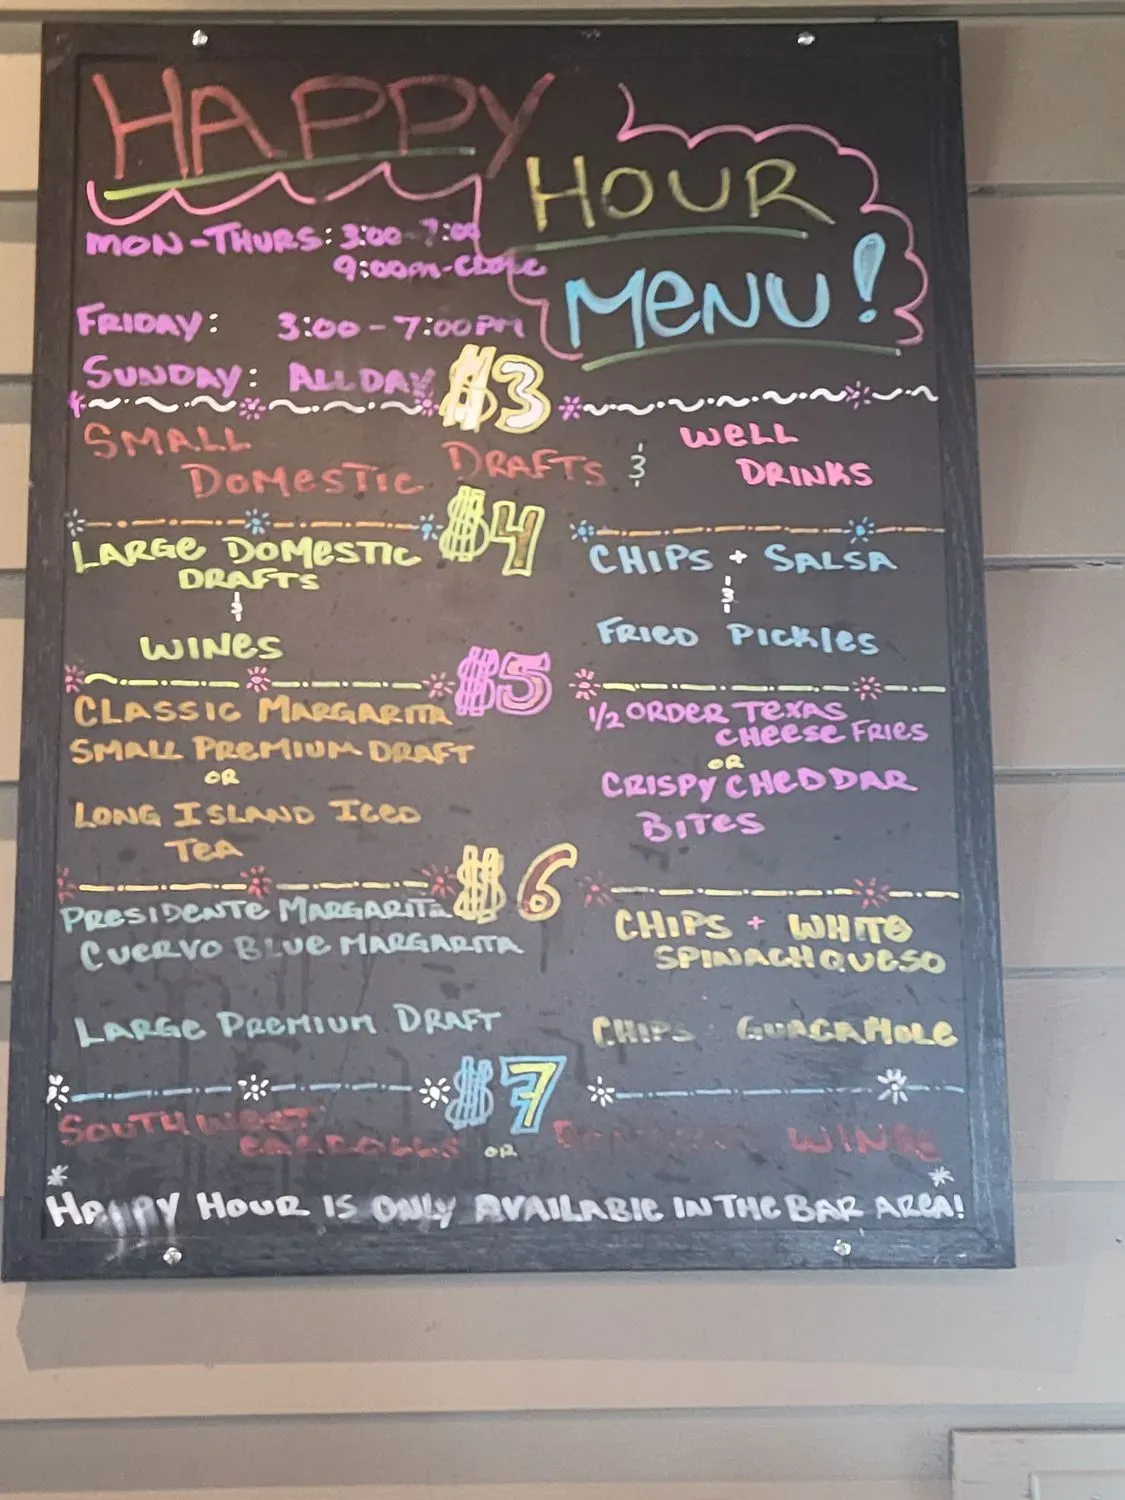 HAPPY
HOUR
MENU!
MON-THURS: 3:00-7:00
9:00PM-CLOSE
FRIDAY: 3:00-7:00PM
SUNDAY: ALL DAY
$3
SMALL DOMESTIC DRAFTS &
WELL DRINKS
$4
LARGE DOMESTIC
DRAFTS
&
WINES
CHIPS + SALSA
&
FRIED PICKLES
$5
CLASSIC MARGARITA
SMALL PREMIUM DRAFT
OR
LONG ISLAND ICED
TEA
1/2 ORDER TEXAS
CHEESE FRIES
OR
CRISPY CHEDDAR
BITES
$6
PRESIDENTE MARGARITA
CUERVO BLUE MARGARITA
LARGE PREMIUM DRAFT
CHIPS + WHITE
SPINACH QUESO
CHIPS GUACAMOLE
$7
SOUTHWEST
EGGROLLS OR WINGS
HAPPY HOUR IS ONLY AVAILABLE IN THE BAR AREA!